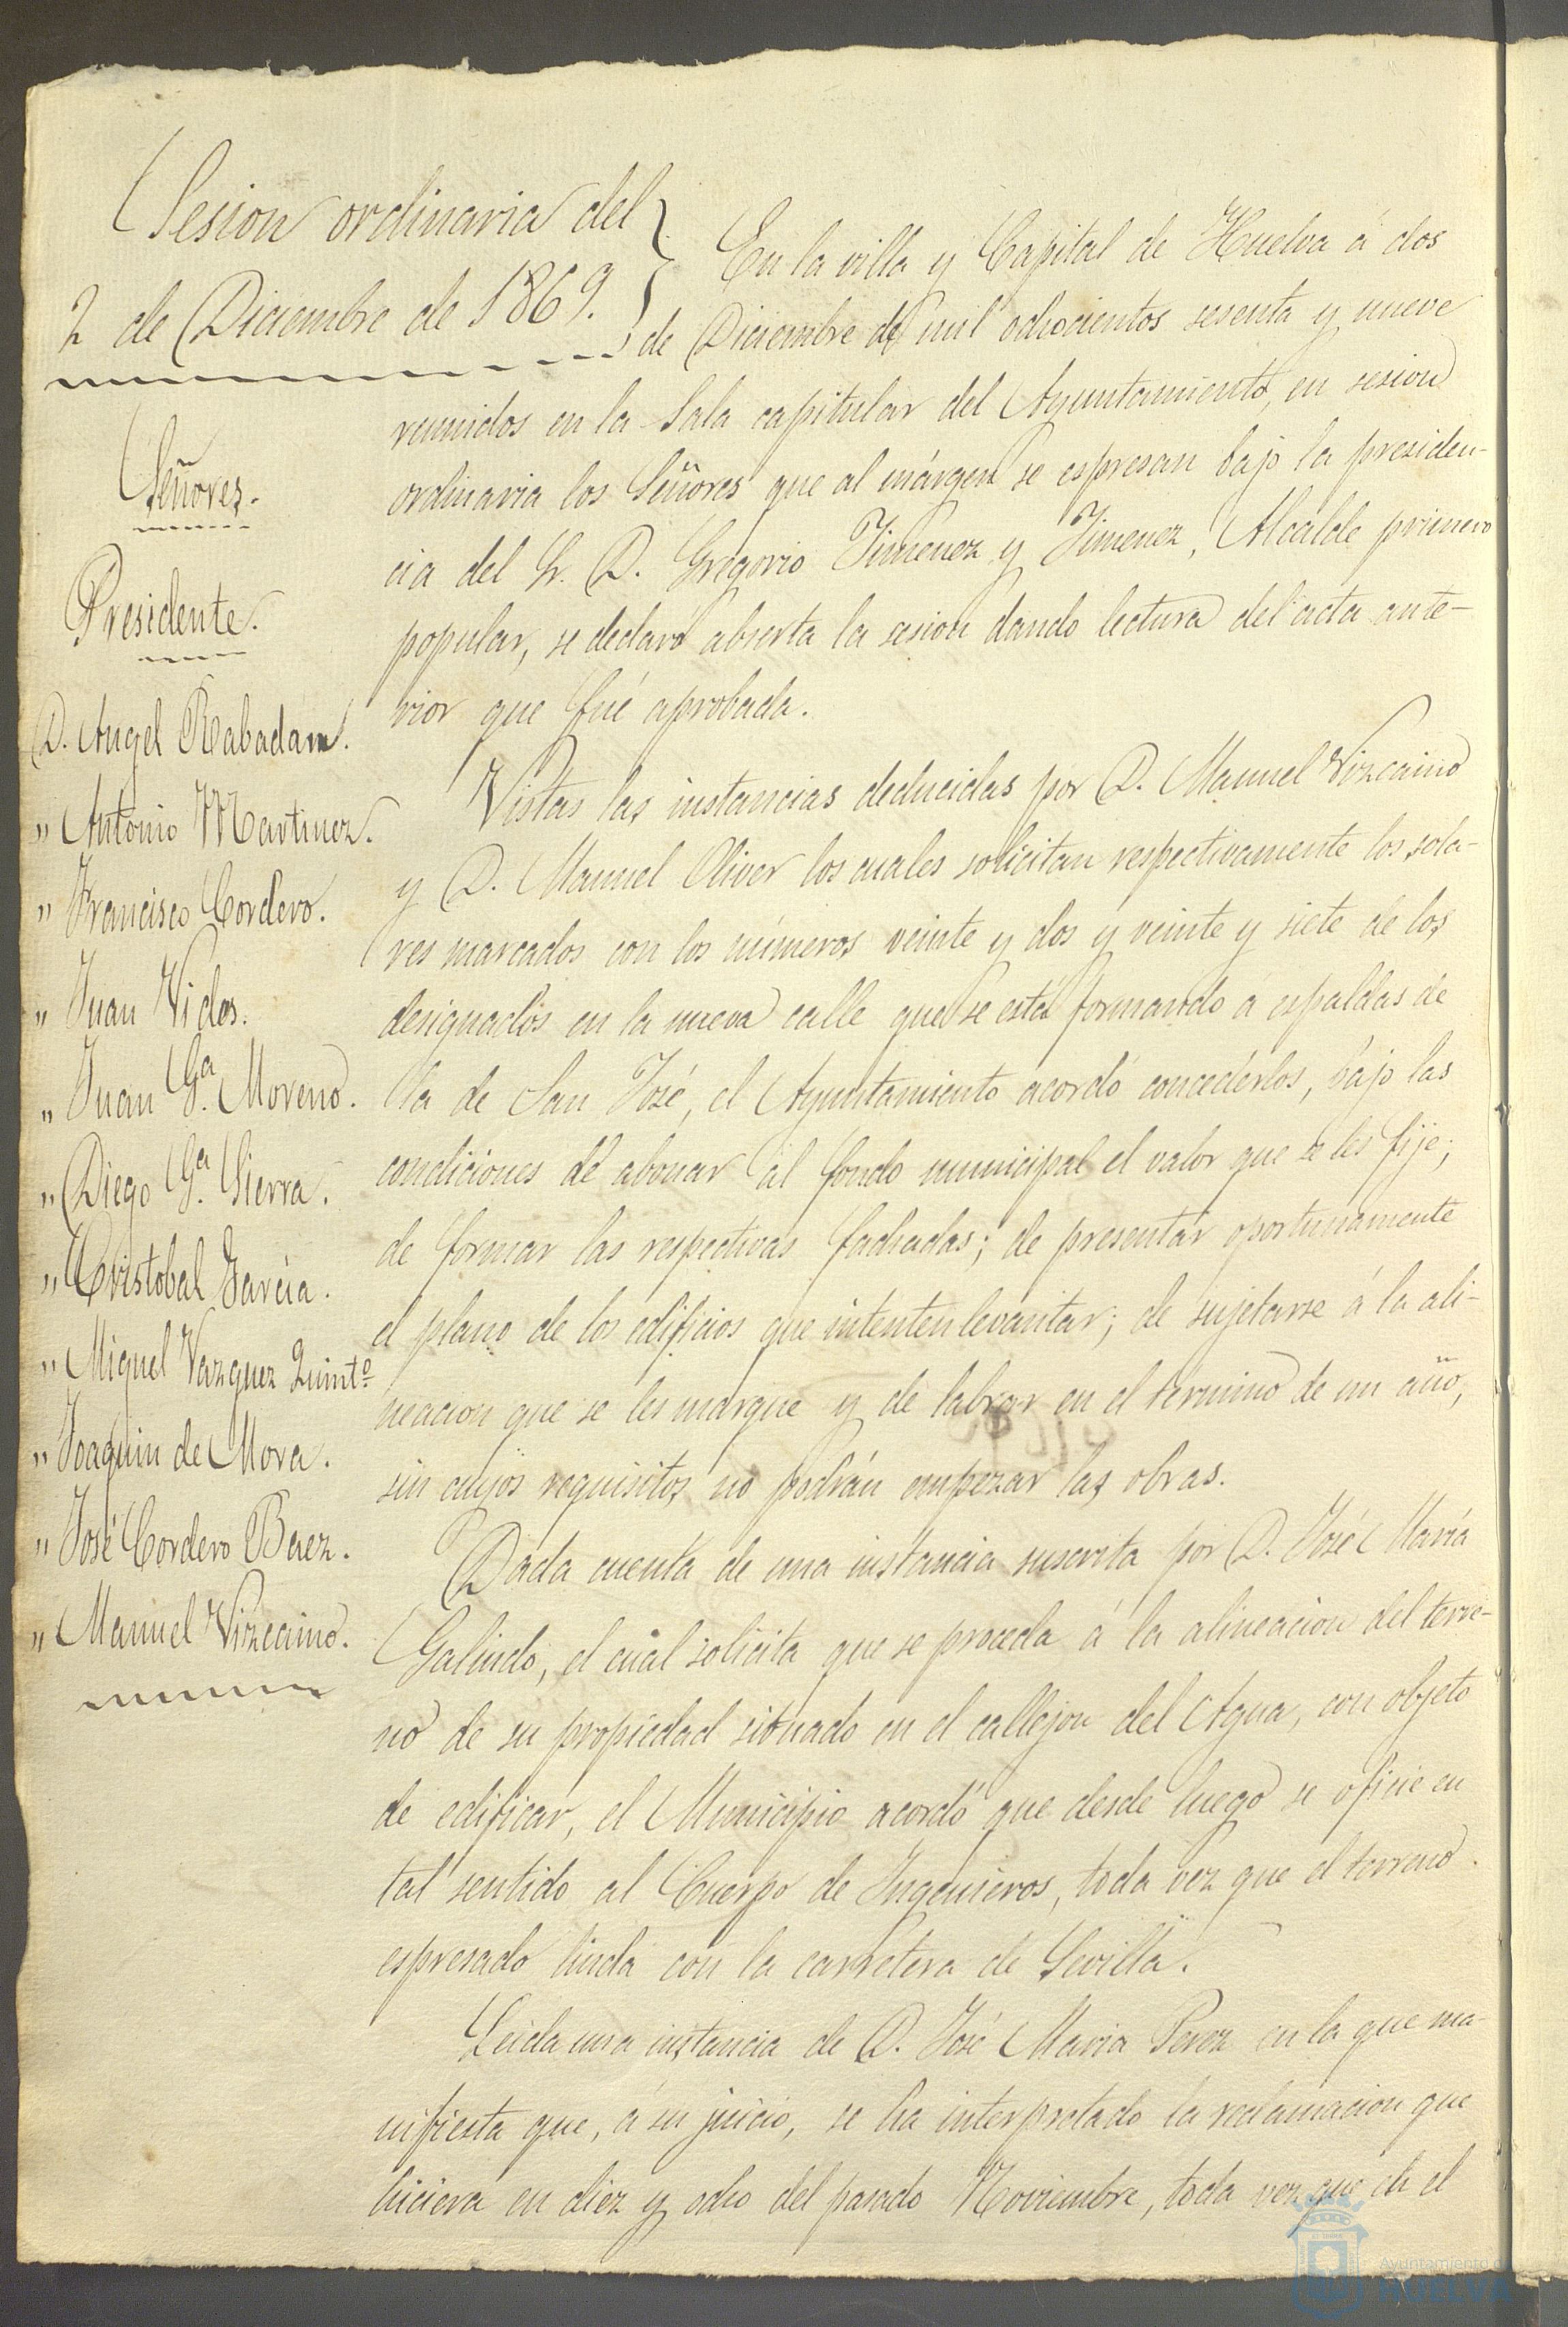 Sesion ordinaria del
2 de Diciembre de 1869.
Señores.
Presidente.
D. Angel Rabadam.
" Antonio Martinez.
" Francisco Cordero.
" Juan Vides.
" Juan Gª. Moreno.
" Diego Gª. Sierra.
" Cristobal García.
" Miguel Vazquez Quintº
" Joaquin de Mora.
" José Cordero Baez.
" Manuel Vizcaino.
En la villa y Capital de Huelva á dos
de Diciembre de mil ochocientos sesenta y nueve
reunidos en la Sala capitular del Ayuntamiento, en sesion
ordinaria los Señores que al márgen se espresan bajo la presiden-
cia del Sr. D. Gregorio Jimenez y Jimenez, Alcalde primero
popular, se declaró abierta la sesion dando lectura del acta ante-
rior que fué aprobada.
Vistas las instancias deducidas por D. Manuel Vizcaino
y D. Manuel Oliver los cuales solicitan respectivamente los sola-
res marcados con los números veinte y dos y veinte y siete de los
designados en la nueva calle que se está formando á espaldas de
la de San José, el Ayuntamiento acordó concederlos, bajo las
condiciones de abonar al fondo municipal el valor que se les fije;
de formar las respectivas fachadas; de presentar oportunamente
el plano de los edificios que intenten levantar; de sujetarse á la ali-
neacion que se les marque y de labrar en el termino de un año,
sin cuyos requisitos no podrán empezar las obras.
Dada cuenta de una instancia suscrita por D. José María
Galindo, el cual solicita que se proceda á la alineacion del terre-
no de su propiedad situado en el callejon del Agua, con objeto
de edificar, el Municipio acordó que desde luego se oficie en
tal sentido al Cuerpo de Ingenieros, toda vez que el terreno
espresado linda con la carretera de Sevilla.
Leida una instancia de D. José Maria Perez en la que ma-
nifiesta que, á su juicio, se ha interpretado la reclamacion que
hiciera en diez y ocho del pasado Noviembre, toda vez que en el
Ayuntamiento de
HUELVA